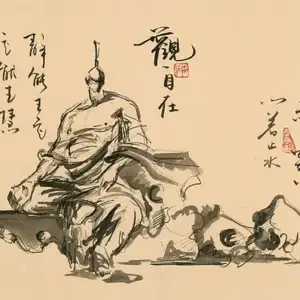 心若止水
觀自在
靜能生定
定能生慧